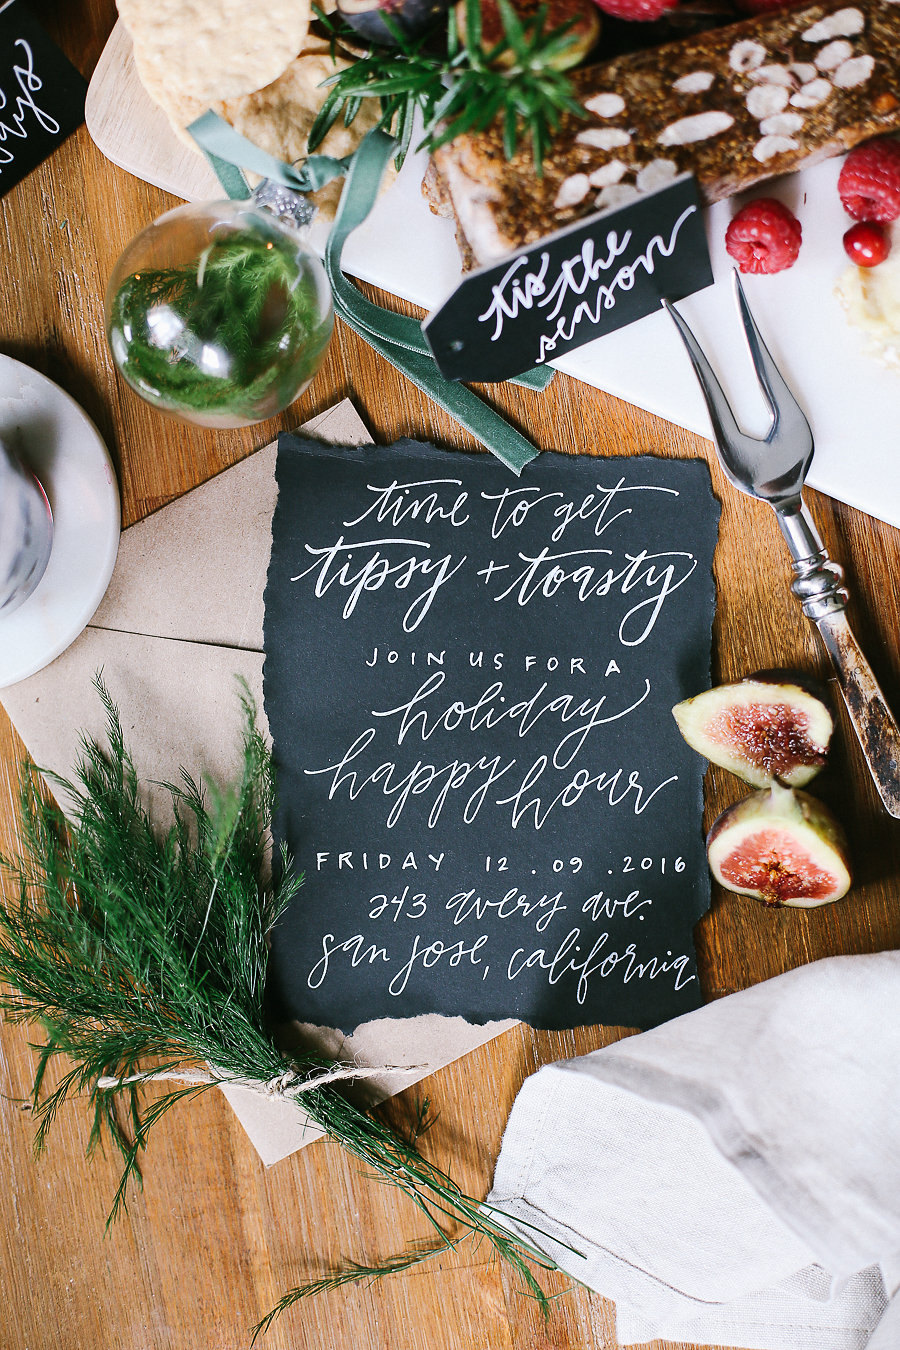 tis the
season
time to get
tipsy + toasty
JOIN US FOR A
holiday
happy hour
FRIDAY 12.09.2016
243 avery ave.
san jose, california